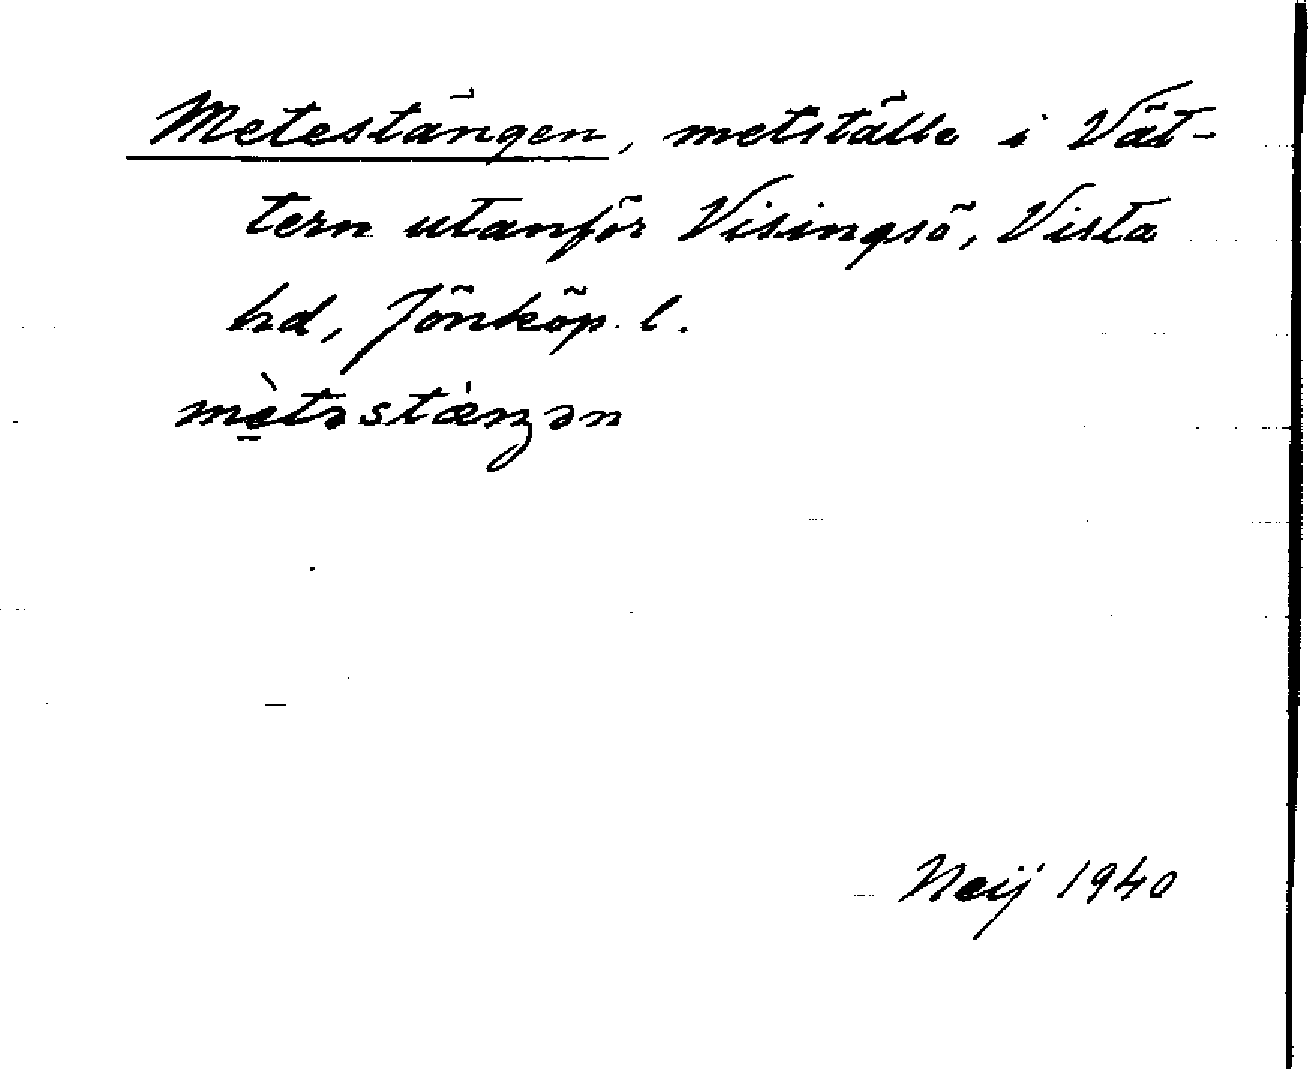 Metestängen, metställe i Vät-
tern utanför Visingsö, Vista
hd, Jönköp. l.
mètəstæŋən
Neij 1940